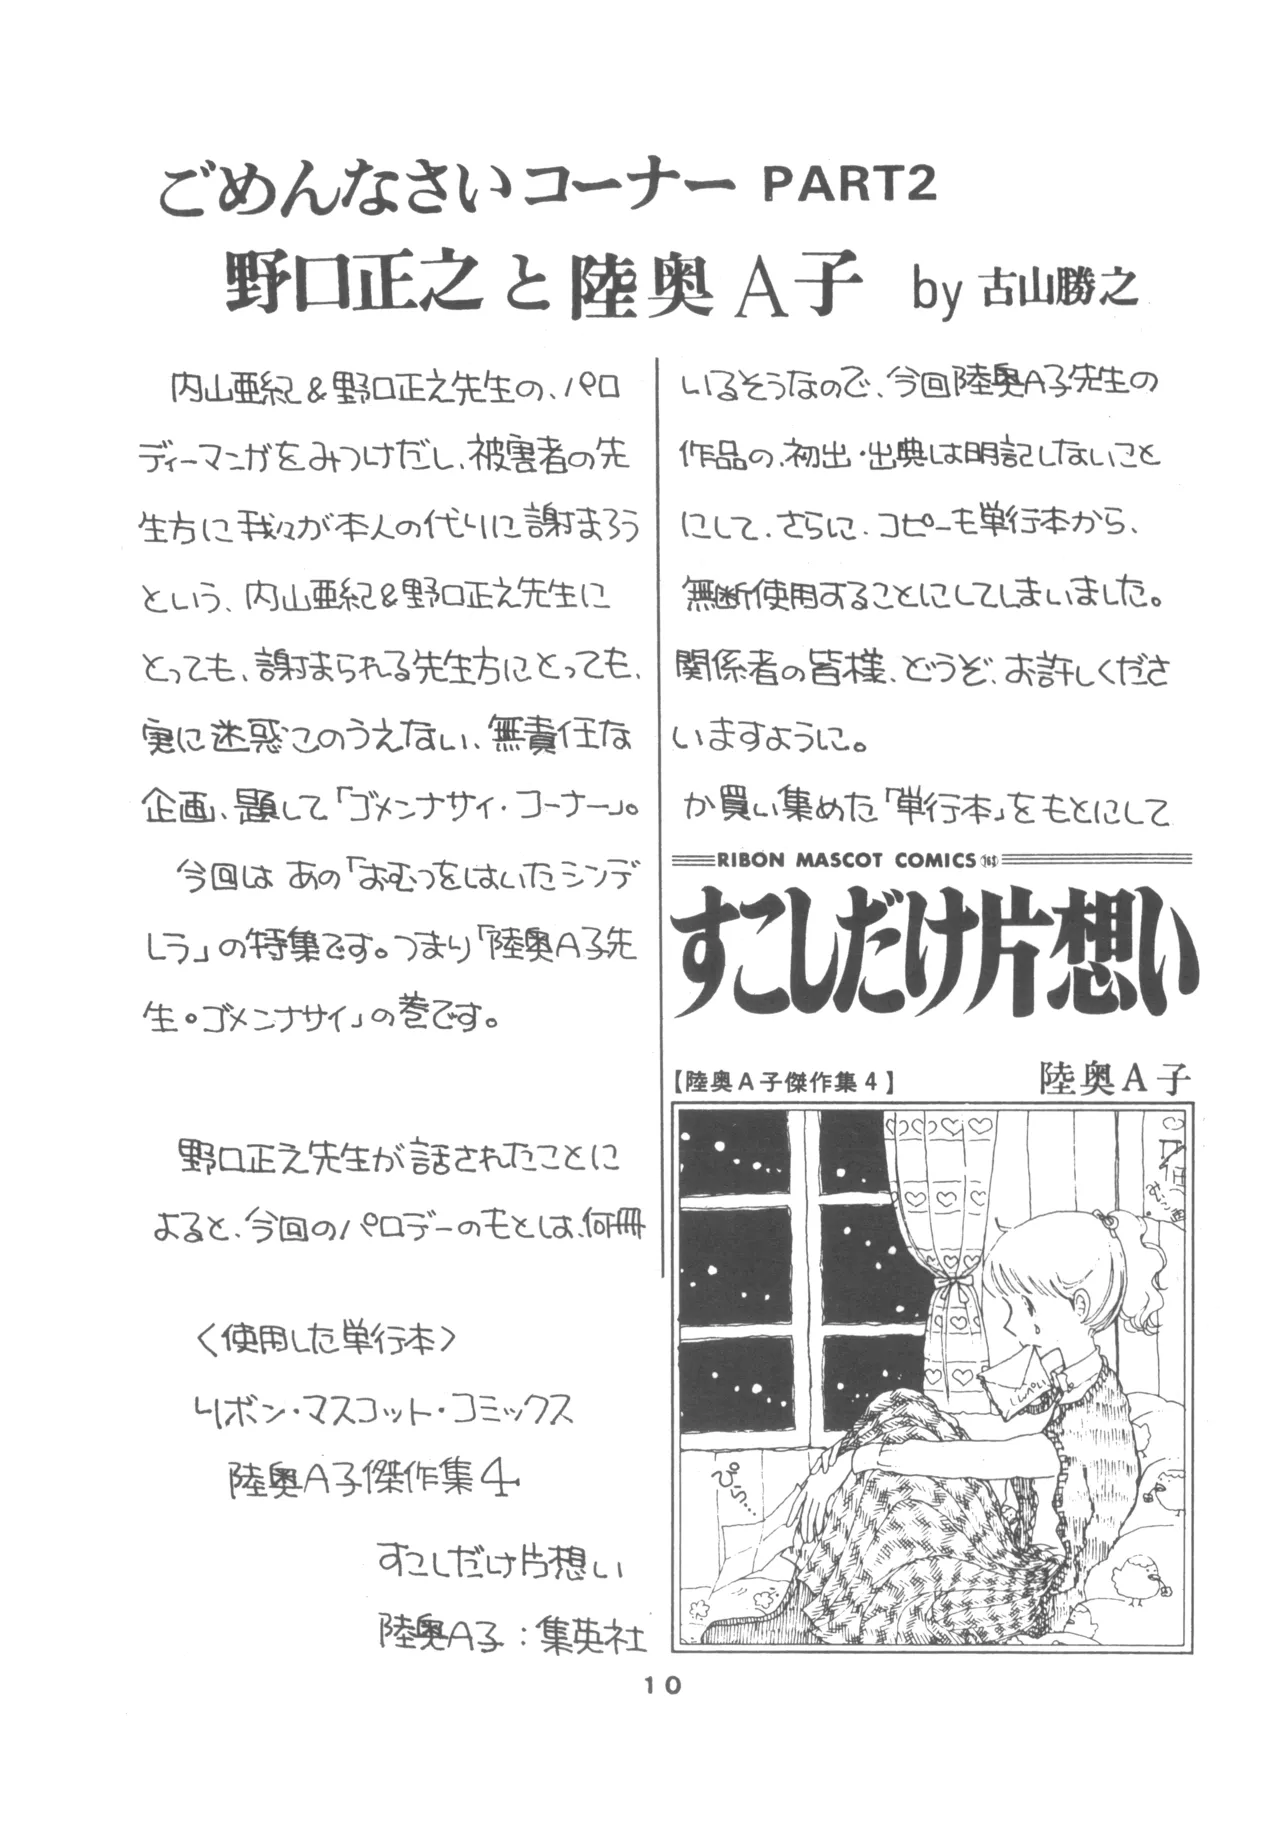 ごめんなさいコーナー PART2
野口正之と陸奥A子 by 古山勝之
内山亜紀&野口正之先生の、パロ
ディーマンガをみつけだし、被害者の先
生方に我々が本人の代りに謝まろう
という、内山亜紀&野口正之先生に
とっても、謝まられる先生方にとっても、
実に迷惑このうえない、無責任な
企画、題して「ゴメンナサイ・コーナー」。
今回は あの「おむつをはいたシンデ
レラ」の特集です。つまり「陸奥A子先
生。ゴメンナサイ」の巻です。
野口正之先生が話されたことに
よると、今回のパロデーのもとは、何冊
か買い集めた「単行本」をもとにして
いるそうなので、今回陸奥A子先生の
作品の、初出・出典は明記しないこと
にして、さらに、コピーも単行本から、
無断使用することにしてしまいました。
関係者の皆様、どうぞ、お許しくださ
いますように。
〈使用した単行本〉
リボン・マスコット・コミックス
陸奥A子傑作集4
すこしだけ片想い
陸奥A子:集英社
RIBON MASCOT COMICS
すこしだけ片想い
【陸奥A子傑作集4】
陸奥A子
ぴら…
10